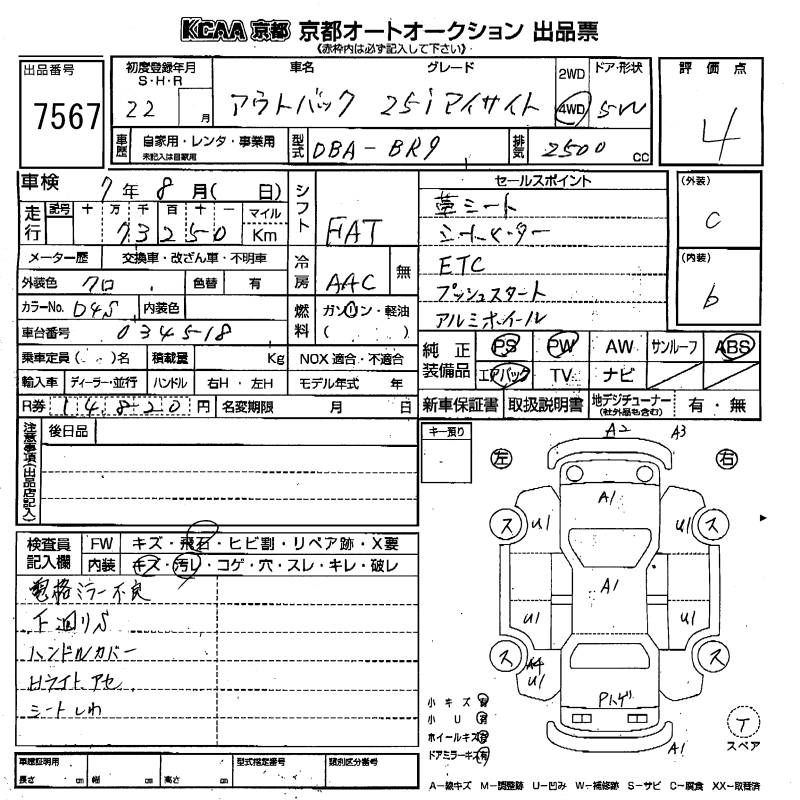 KCAA 京都 京都オートオークション 出品票
《赤枠内は必ず記入して下さい》
出品番号
7567
初度登録年月
S・H・R
22 月
車名 グレード
アウトバック 25iアイサイト
2WD
4WD
ドア・形状
5W
評価点
4
車歴 自家用・レンタ・事業用
未記入は自家用
型式 DBA-BR9
排気 2500 CC
車検 7年 8月( 日)
走行 記号 十 万 千 百 十 一 マイル
73250 Km
シフト FAT
セールスポイント
革シート
シートヒーター
ETC
プッシュスタート
アルミホイール
(外装)
C
(内装)
b
メーター歴 交換車・改ざん車・不明車
外装色 クロ 色替 有
冷房 AAC 無
カラーNo. D4S 内装色
燃料 ガソリン・軽油
( )
車台番号 034518
乗車定員( ・ )名 積載量 Kg NOX 適合・不適合
輸入車 ディーラー・並行 ハンドル 右H・左H モデル年式 年
R券 14820円 名変期限 月 日
純正装備品 PS PW AW サンルーフ ABS
エアバック TV ナビ
新車保証書 取扱説明書 地デジチューナー
(社外品も含む) 有・無
注意事項(出品店記入) 後日品
キー預り
左 右
A2 A3
A1
U1 U1
ス ス
A1
U1 U1
ス ス
A4
U1
Pハゲ
A1
T
スペア
検査員記入欄 FW キズ・飛石・ヒビ割・リペア跡・X要
内装 キズ・汚レ・コゲ・穴・スレ・キレ・破レ
電格ミラー不良
下廻りS
ハンドルカバー
Hライトアセ
シートしわ
小キズ 有
小U 有
ホイールキズ 有
ドアミラーキズ 有
車庫証明用
長さ cm 幅 cm 高さ cm
型式指定番号 類別区分番号
A-線キズ M-調整跡 U-凹み W-補修跡 S-サビ C-腐食 XX-取替済